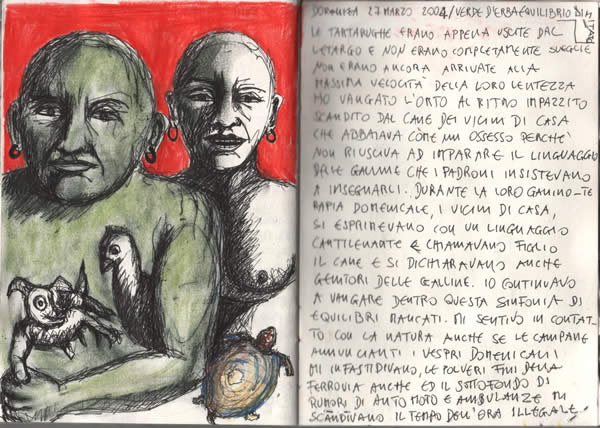 DOMENICA 27 MARZO 2004/VERDE D'ERBA EQUILIBRIO DIM
LE TARTARUGHE ERANO APPENA USCITE DAL
LETARGO E NON ERANO COMPLETAMENTE SVEGLIE
NON ERANO ANCORA ARRIVATE ALLA
MASSIMA VELOCITÀ DELLA LORO LENTEZZA
HO VANGATO L'ORTO AL RITMO IMPAZZITO
SCANDITO DAL CANE DEI VICINI DI CASA
CHE ABBAIAVA COME UN OSSESSO PERCHE'
NON RIUSCIVA AD IMPARARE IL LINGUAGGIO
DELLE GALLINE CHE I PADRONI INSISTEVANO
A INSEGNARLI. DURANTE LA LORO GALLINO-TE
RAPIA DOMENICALE, I VICINI DI CASA,
SI ESPRIMEVANO CON UN LINGUAGGIO
CANTILENANTE E CHIAMAVANO FIGLIO
IL CANE E SI DICHIARAVANO ANCHE
GENITORI DELLE GALLINE. IO CONTINUAVO
A VANGARE DENTRO QUESTA SINFONIA DI
EQUILIBRI MANCATI. MI SENTIVO IN CONTAT-
TO CON LA NATURA ANCHE SE LE CAMPANE
ANNUNCIANTI I VESPRI DOMENICALI
MI INFASTIDIVANO, LE POLVERI FINI DELLA
FERROVIA ANCHE ED IL SOTTOFONDO DI
RUMORI DI AUTO MOTO E AMBULANZE MI
SCANDIVANO IL TEMPO DELL'ORA ILLEGALE.